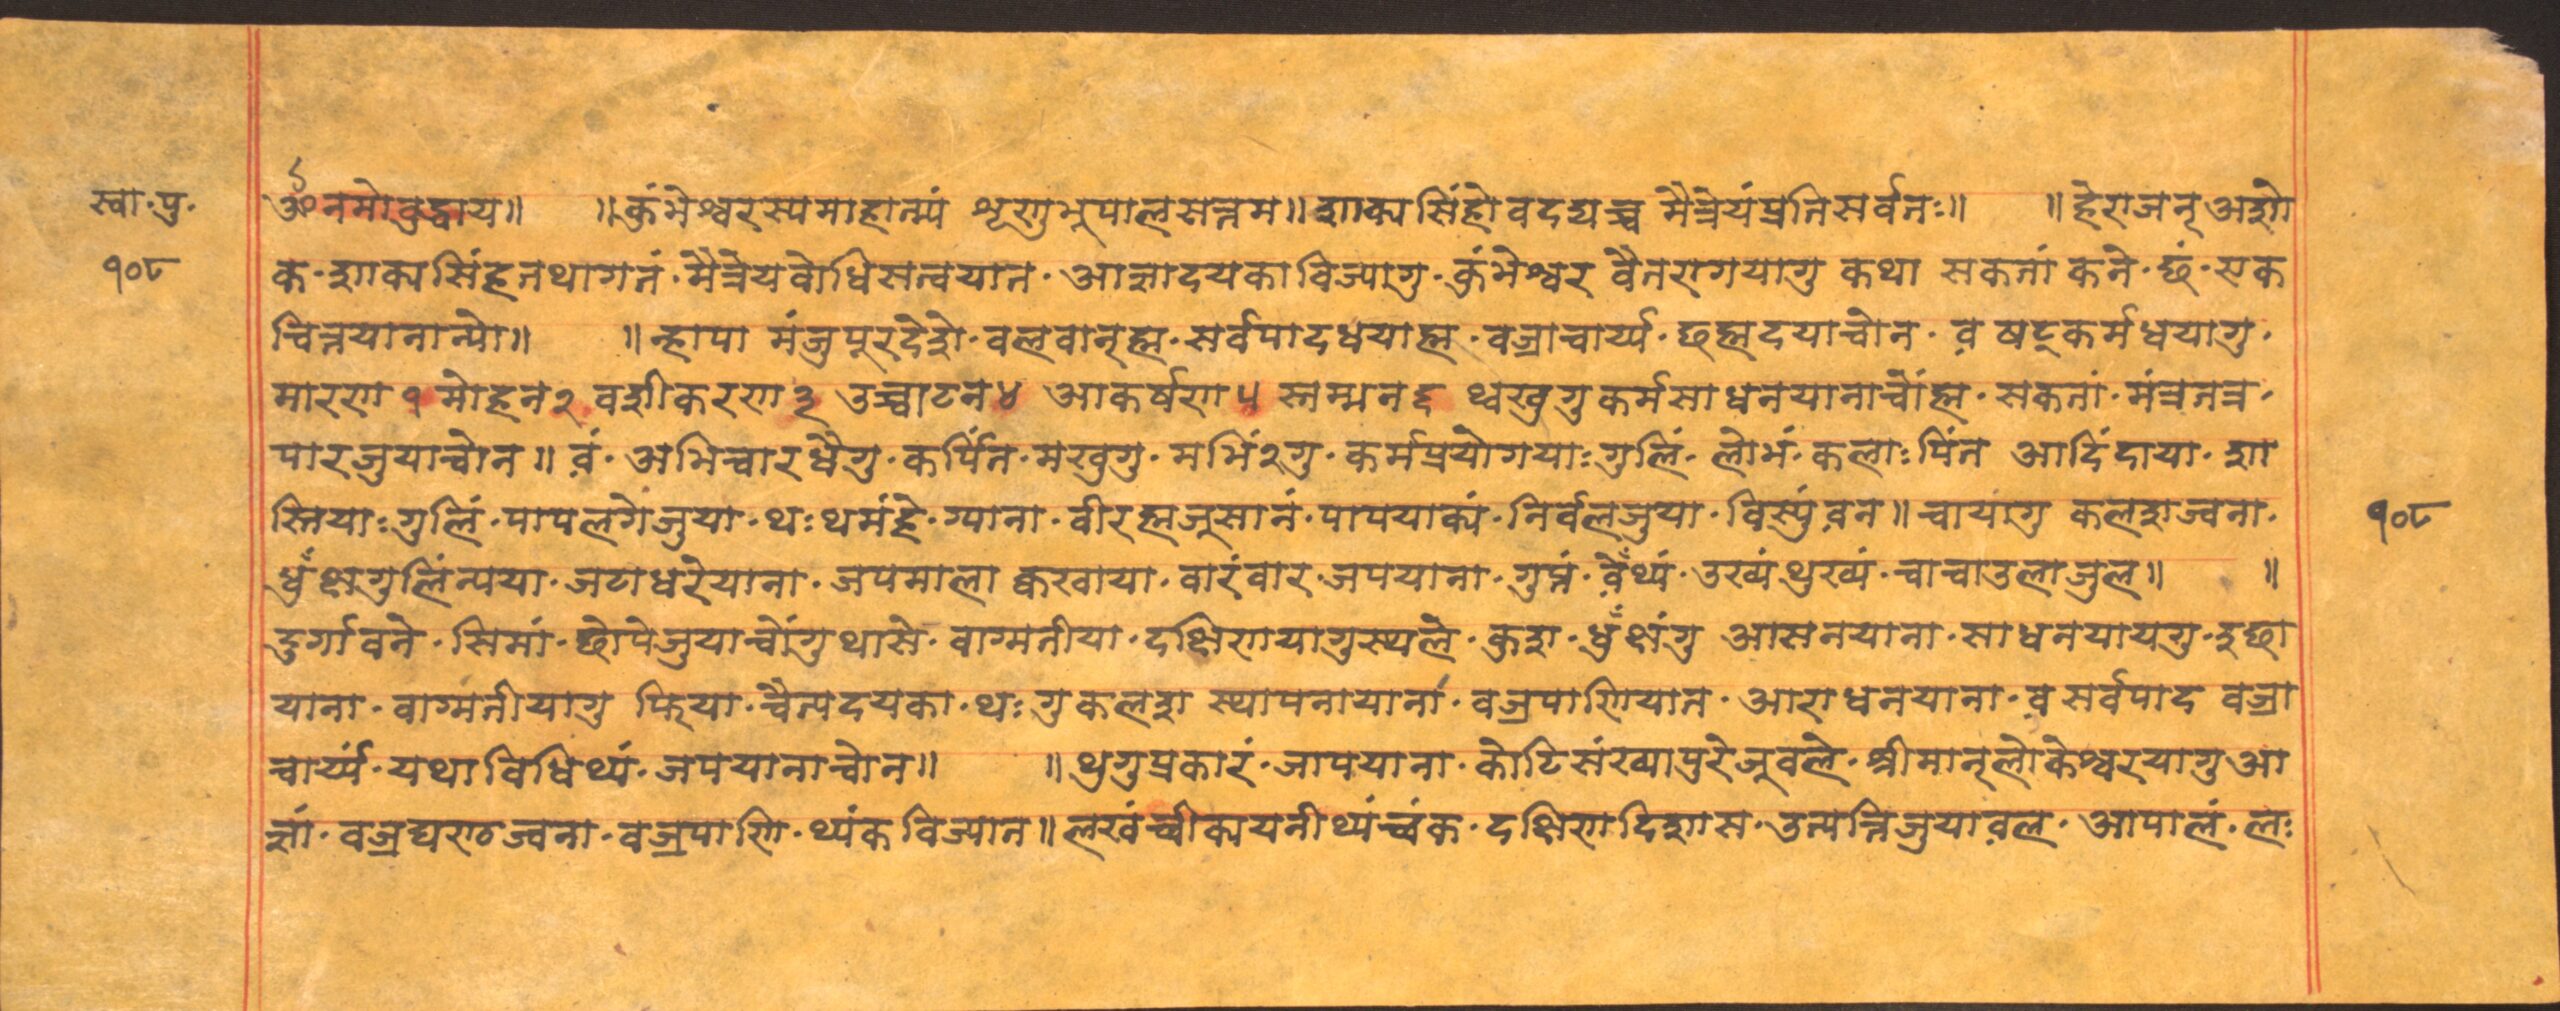 स्वा·पु·
१०८
ॐ नमो वुद्धाय॥ ॥कुंभेश्वरस्यमाहात्म्यं शृणुभुपालसत्तम॥ शाक्यसिंहोवदद्यच्च मैत्रेयंप्रतिसर्वतः॥ ॥हेराजन् अशो
क·शाक्यसिंहतथागतं·मैत्रेयवोधिसत्वयात·आज्ञादयकाविज्यागु·कुंभेश्वर वैतरागयागु कथा सकतां कने·छं·एक
चित्तयानान्यो॥ ॥न्हापा मंजुपूरदेशे·वलवान्ह्म·सर्वपादधयाह्म·वज्राचार्य्य·छह्मदयाचोन·व़ षट्कर्मधयागु·
मारण १ मोहन२ वशीकरण ३ उच्चाटन४ आकर्षण ५ स्तम्भन६ थ्वखुगुकर्मसाधनयानाचोंह्म·सकतां·मंत्रतन्त्र·
पारजुयाचोन॥ व़ं·अभिचारधैगु·कर्पिंत·मखुगु·मभिं२गु·कर्मप्रयोगयाः गुलिं·लोभं·कलाः पिंत आदिंदाया·शा
स्तियाः गुलिं·पापलगेजुया·थः थमंहे·ग्याना·वीरह्मजूसानं·पापयाक्यं·निर्वलजुया·विस्युंव़न॥ चायागु कलशज्वना·
ध्रुँक्षगुलिंन्यया·जटाधरेयाना·जपमाला क्वखाया·वारंवार·जपयाना·गुप्तं·व़ेँथ्यं·उख्यंथुख्यं·चाचाउलाजुल॥ ॥
दुर्गावने·सिमां·छोपेजुयाचोंगुथासे·वाग्मतीया·दक्षिणयागुस्थले·कुश·ध्रुँक्षंगु आसनयाना·साधनयायगु·इछा
याना·वाग्मतीयागु फिया·चैत्यदयका·थः गुकलश स्थापनायाना·वज्रपाणियात·आराधनयाना·व़सर्वपाद वज्रा
चार्य्यं·यथाविधिथ्यं·जपयानाचोन॥ ॥थुगुप्रकारं·जापयाना·कोटिसंख्यापुरेजूवले·श्रीमान्लोकेश्वरयागुआ
ज्ञां·वज्रघण्ठज्वना·वज्रपाणि·थ्यंकविज्यात॥ लखंच्वीक्ययनीथ्यंच्वंक·दक्षिणदिशास·उत्पत्तिजुयाव़ल·आपालं·लः
१०८